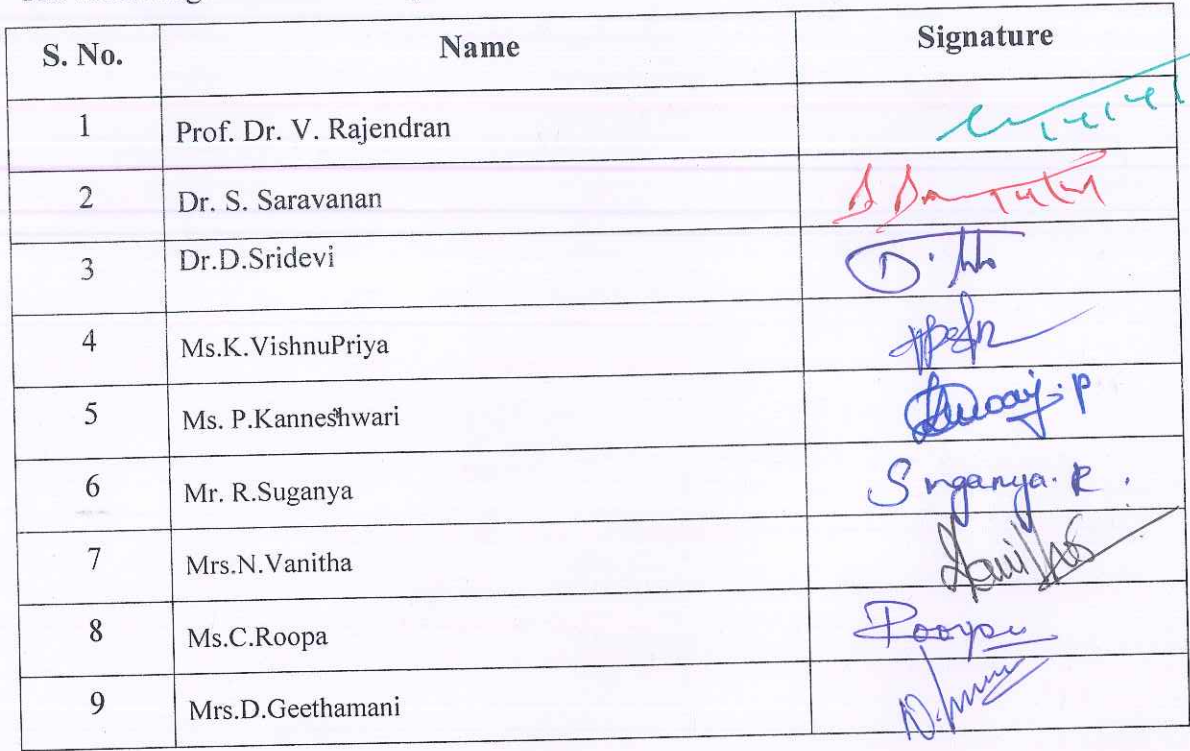 S. No. Name Signature
1 Prof. Dr. V. Rajendran
2 Dr. S. Saravanan
3 Dr.D.Sridevi
4 Ms.K.VishnuPriya
5 Ms. P.Kanneshwari
6 Mr. R.Suganya Suganya. R.
7 Mrs.N.Vanitha
8 Ms.C.Roopa Roopa
9 Mrs.D.Geethamani